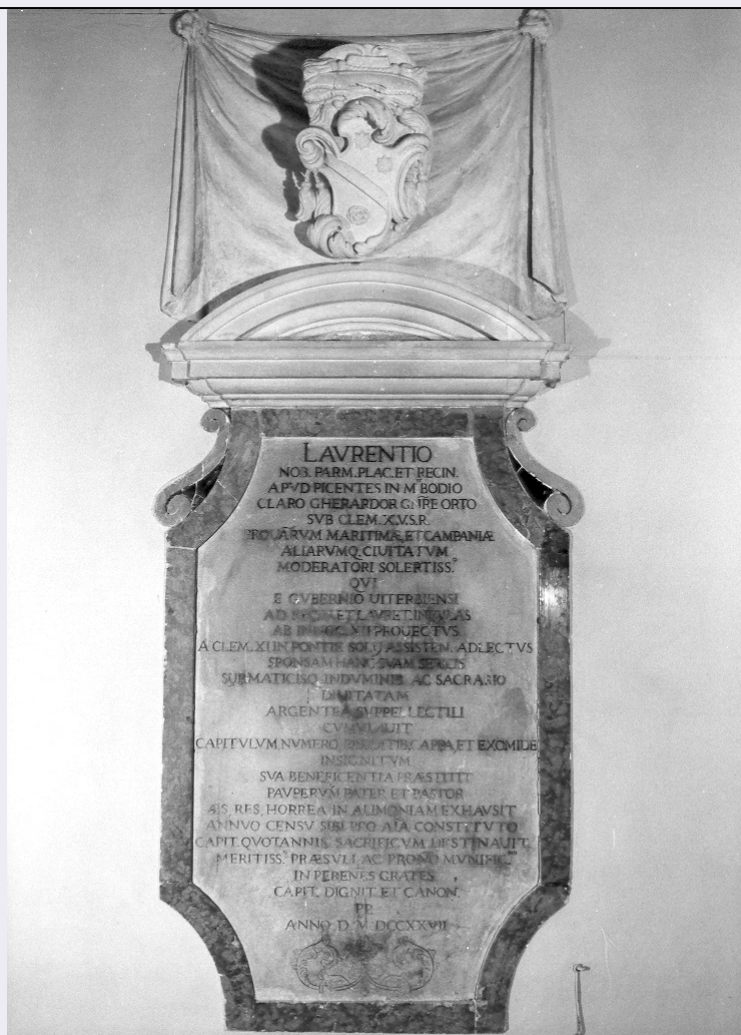 LAVRENTIO
NOB. PARM. PLAC. ET RECIN.
APVD PICENTES IN M. BODIO
CLARO GHERARDOR G: TRE ORTO
SVB CLEM. X. V. S. R.
MARITIMÆ, ET CAMPANIÆ
ALIARVMQ. CIVITATVM
MODERATORI SOLERTISS.º
QVI
E GVBERNIO UITERBIENSI
AD ET LAVRET.
AB PROUECTVS
A CLEM. XI IN PONTIF. SOLIJ ASSISTEN. ADLECTVS
SPONSAM HANC SVAM SERICIS
INDVMINIB. AC SACRARIO
DIUITATAM
ARGENTEA SVPPELLECTILI
CVMVLAUIT
CAPITVLVM NUMERO, CAPPA, ET EXOMIDE
INSIGNITVM
SVA BENEFICENTIA PRÆSTITIT
PAVPERVM PATER ET PASTOR
RES, HORREA IN ALIMONIAM EXHAVSIT
ANNVO CENSV SIBI PRO AIA CONSTITVTO
CAPIT. QVOTANNIS SACRIFICVM DESTINAUIT
MERITISS.º PRÆSVLI, AC PRONO MVNIFIC.
IN PERENES GRATES
CAPIT. DIGNIT. ET CANON.
PP.
ANNO D. M DCCXXVII